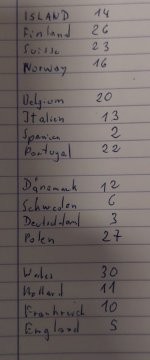 ISLAND 14
Finland 26
Suisse 23
Norway 16
Belgium 20
Italien 13
Spanien 2
Portugal 22
Dänemark 12
Schweden 6
Deutschland 3
Polen 27
Wales 30
Holland 11
Frankreich 10
England 5